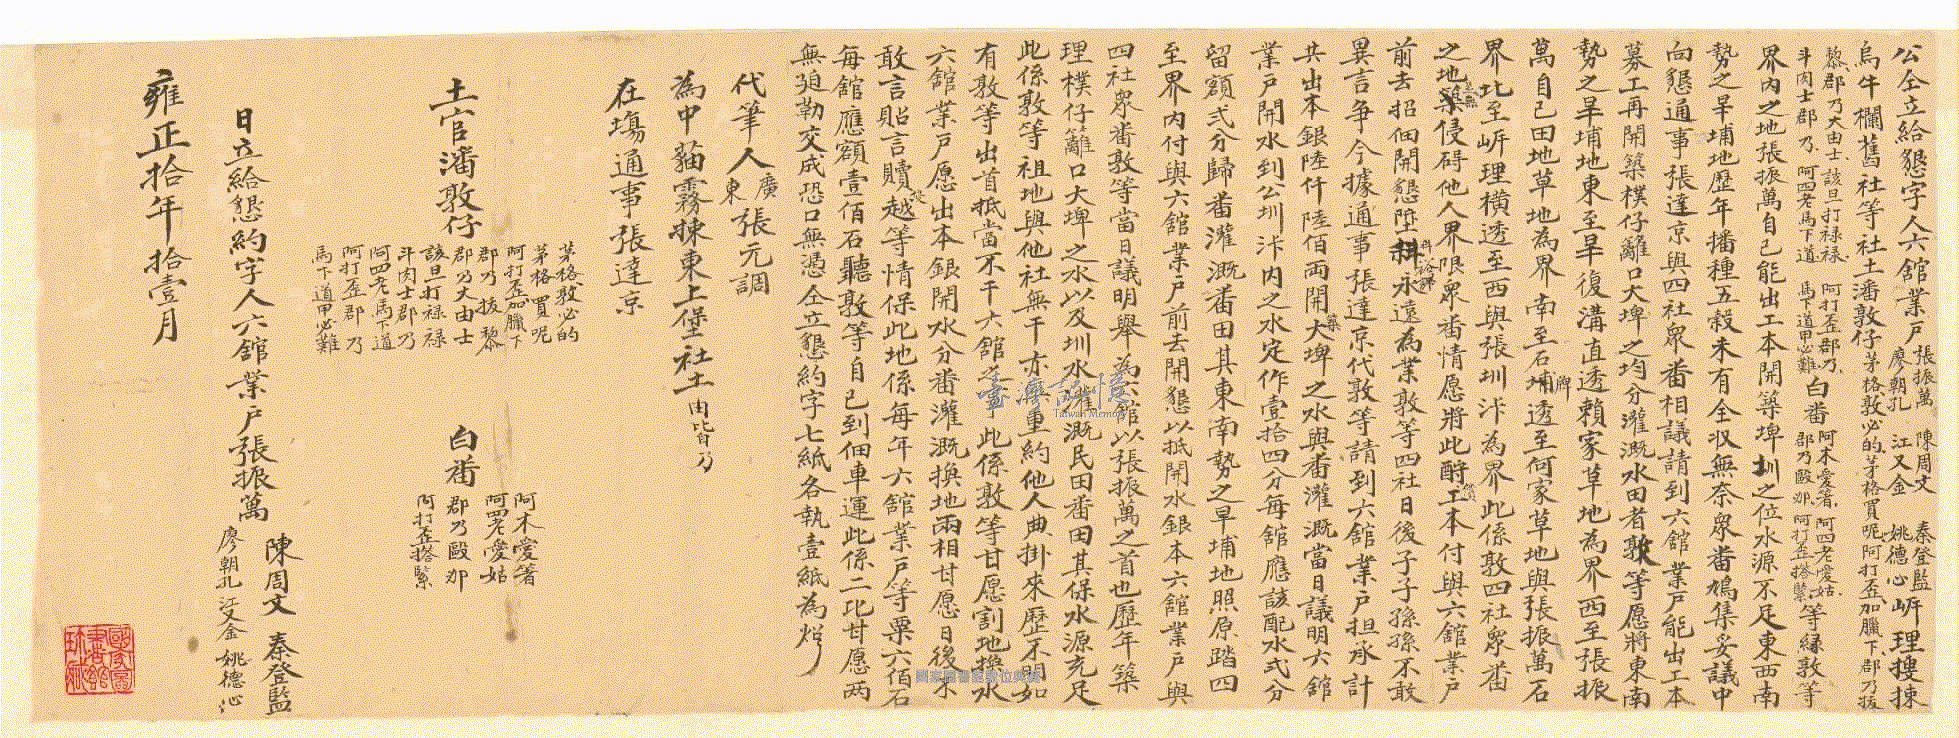 公仝立給懇字人六館業戶張振萬 陳周文 秦登監 廖朝孔 江又金 姚德心 岍理搜揀
烏牛欄舊社等社土潘敦仔 茅格敦必的 茅格買呢 阿打歪加臘下 郡乃拔
黎郡乃大由士 該旦打祿祿 阿打歪郡乃 斗肉士郡乃 阿四老馬下道 馬下道甲必難 白番 阿木愛著 阿四老愛姑 郡乃毆那 阿打歪搭緊 等緣敦等
界內之地張振萬自己能出工本開築埤圳之位水源不足東西南
勢之旱埔地歷年播種五穀未有全收無奈眾番鳩集妥議中
向懇通事張達京與四社眾番相議請到六館業戶能出工本
募工再開築樸仔籬口大埤之均分灌溉水田者敦等愿將東南
勢之旱埔地東至旱復溝直透賴家草地為界西至張振
萬自己田地草地為界南至石牌透至何家草地與張振萬石
界北至岍理橫透至西與張圳汴為界此係敦四社眾番
之地並無侵碍他人界限眾番情愿將此酧工本付與六館業戶
前去招佃開懇陞科永遠為業敦等四社日後子子孫孫不敢
異言争今據通事張達京代敦等請到六館業戶担承計
共出本銀陸仟陸佰兩開築大埤之水與番灌溉當日議明六館
業戶開水到公圳汴內之水定作壹拾四分每館應該配水弍分
留額弍分歸番灌溉番田其東南勢之旱埔地照原踏四
至界內付與六館業戶前去開懇以抵開水銀本六館業戶與
四社眾番敦等當日議明舉為六館以張振萬之首也歷年築
理樸仔籬口大埤之水以及圳水灌溉民田番田其保水源充足
此係敦等祖地與他社無干亦無重約他人典掛來歷不明如
有敦等出首抵當不干六館之事此係敦等甘愿割地換水
六館業戶愿出本銀開水分番灌溉換地兩相甘愿日後不
敢言貼言贖越等情保此地係每年六館業戶等粟六佰石
每館應額壹佰石聽敦等自己到佃車運此係二比甘愿两
無廹勒交成恐口無憑仝立懇約字七紙各執壹紙為炤
代筆人 廣東 張元調
為中貓霧揀東上堡社土由皆乃
在塲通事張達京
土官潘敦仔 茅格敦必的 茅格買呢 阿打歪加臘下 郡乃拔黎 郡乃大由士 該旦打祿祿 斗肉士郡乃 阿四老馬下道 阿打歪郡乃 馬下道甲必難
白番 阿木愛著 阿四老愛姑 郡乃毆那 阿打歪搭緊
日立給懇約字人六館業戶張振萬 陳周文 秦登監 廖朝孔 江又金 姚德心
雍正拾年拾壹月
臺灣記憶
Taiwan Memory
國家圖書館數位典藏
國家圖書館珍藏